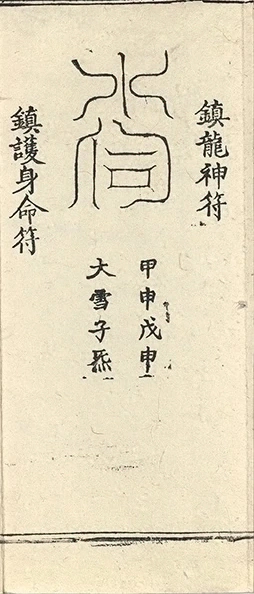 鎮龍神符
甲申戊申
大雪子炁
鎮護身命符